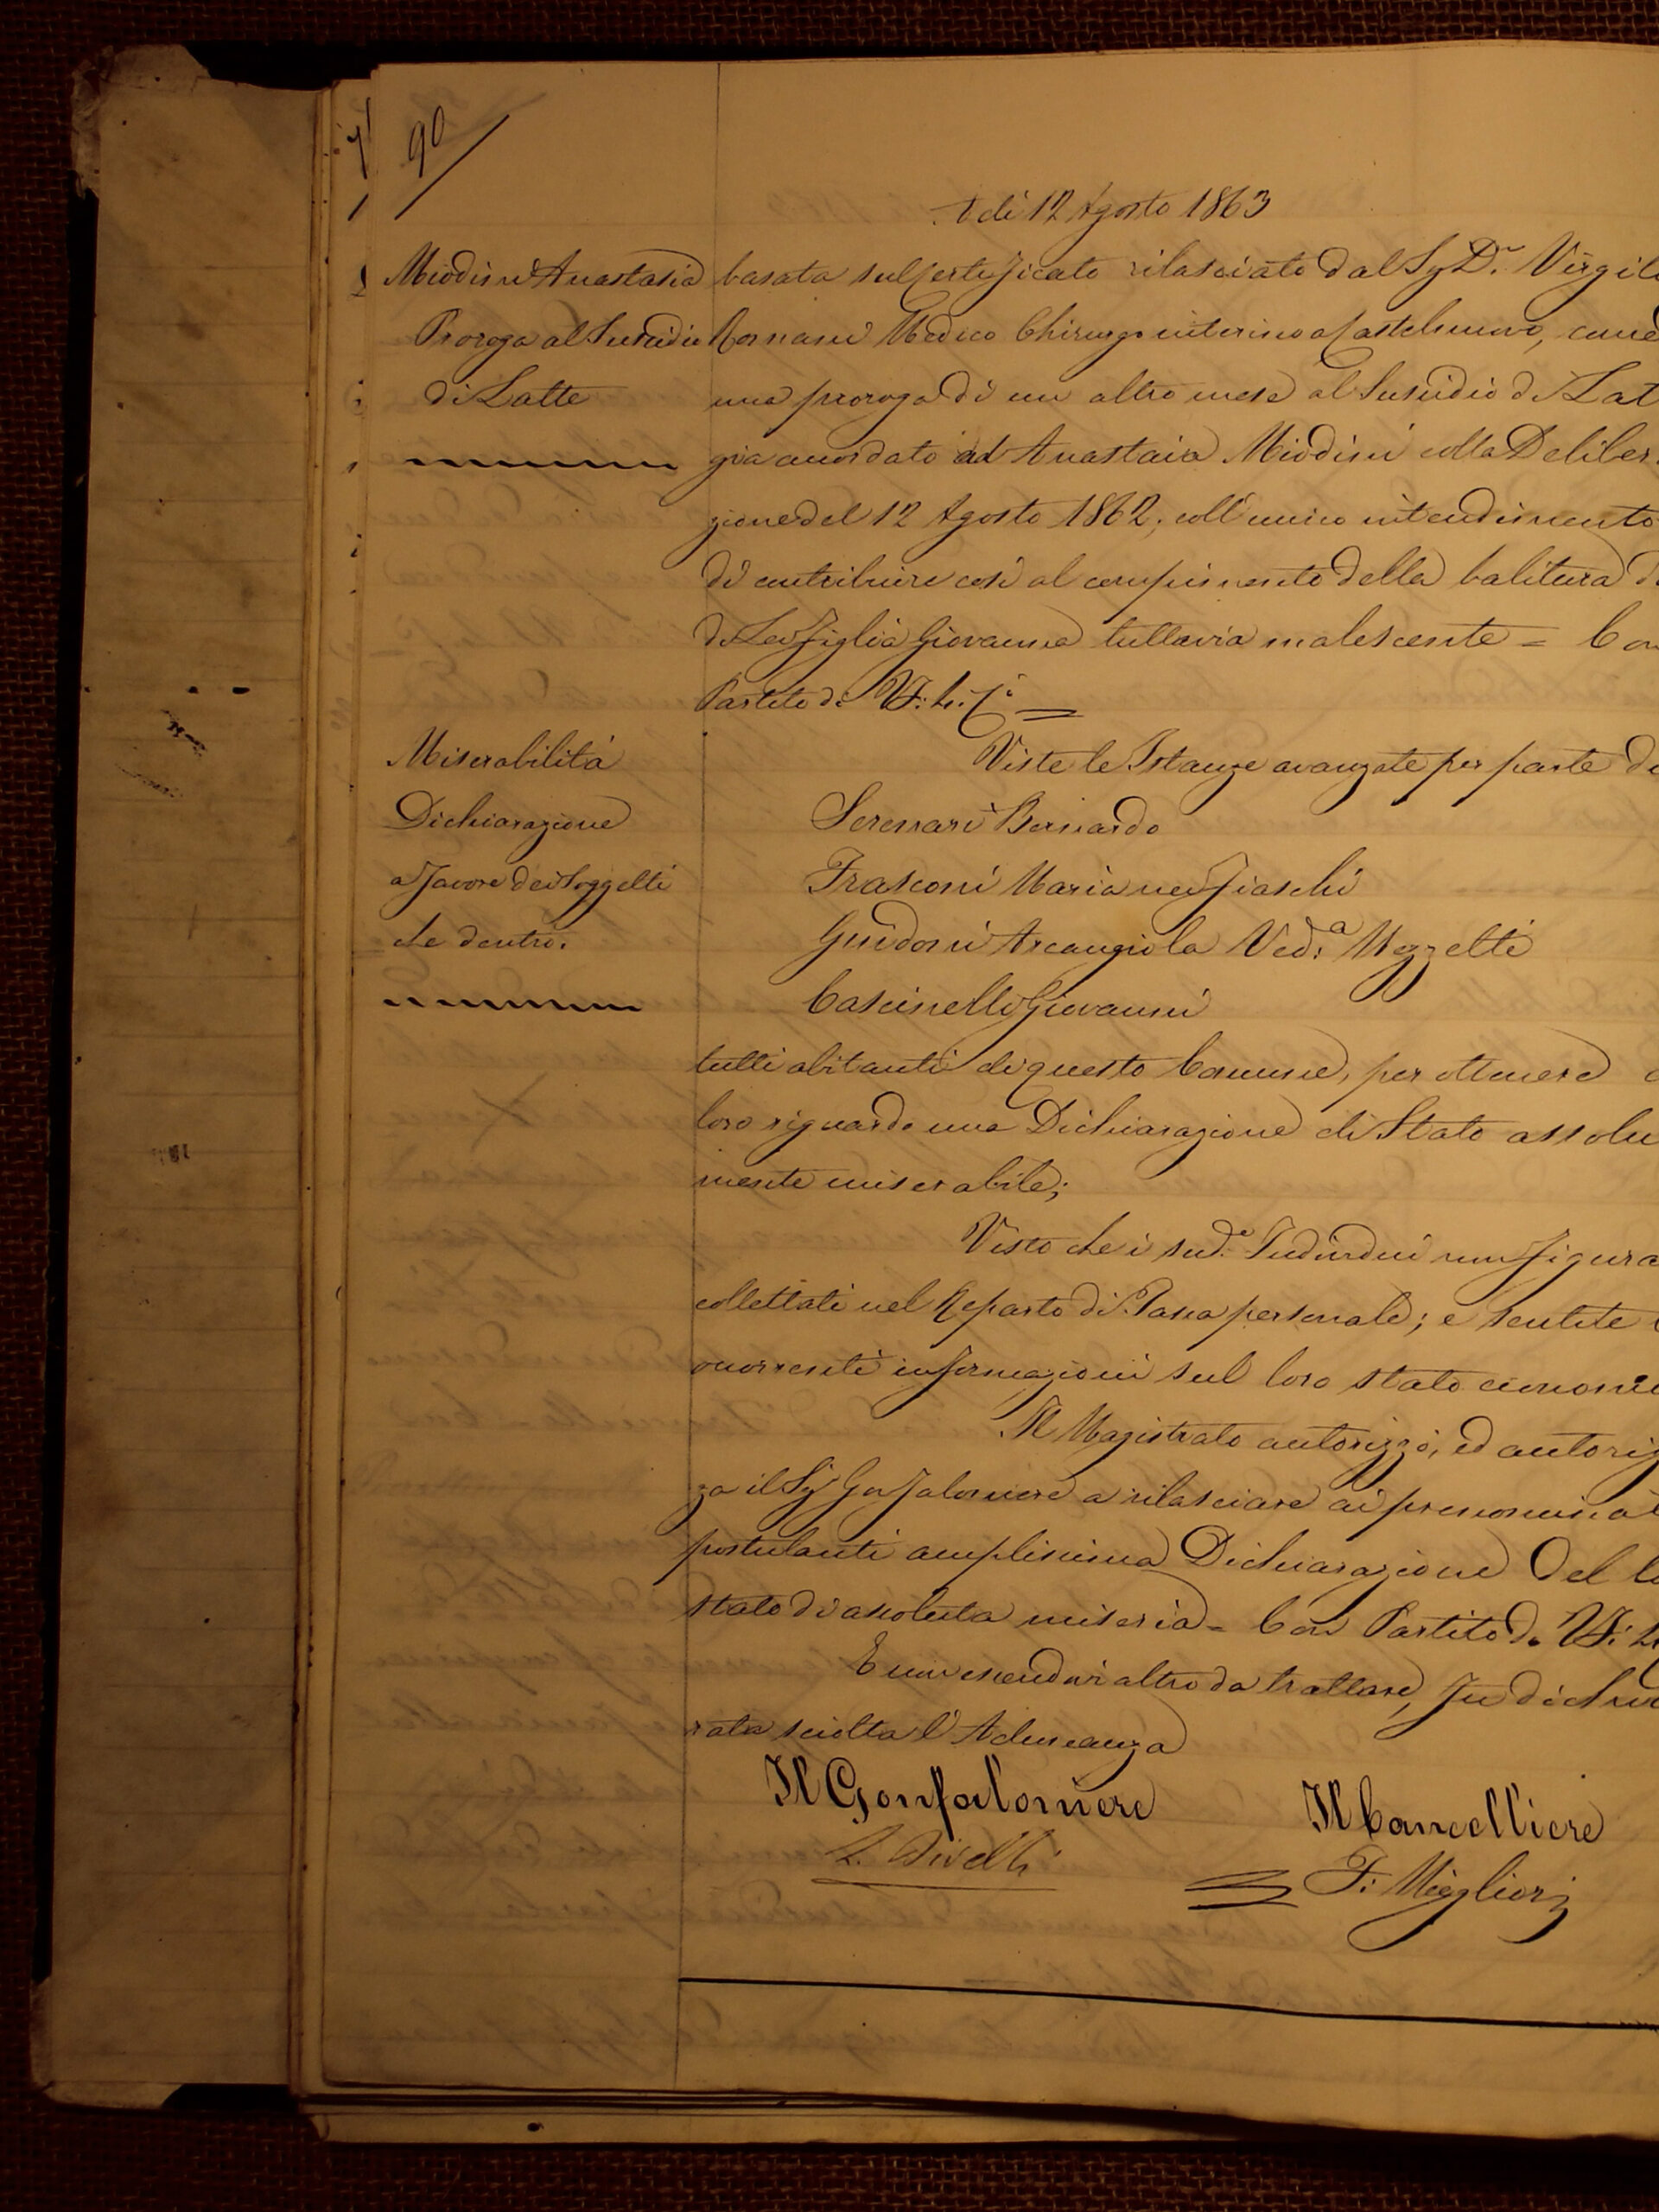 90
A dì 12 Agosto 1863
Miodini Anastasia
Proroga al Sussidio
di Latte
basata sul certificato rilasciato dal Sg Dr. Virgil
Medico Chirurgo interino a Castelnuovo,
una proroga di un altro mese al Sussidio di Lat
già accordato ad Anastasia Miodini colla Deliber
zione del 12 Agosto 1862, coll'unico intendimento
di contribuire così al compimento della balitura d
di Lei figlia Giovanna tuttavia malescente = Con
Partito di
Miserabilità
Dichiarazione
a favore dei Soggetti
che dentro.
Viste le Istanze avanzate per parte de
Serenari Bernardo
Frasconi Maria nei Fiaschi
Guidoni Arcangiola Ved.a Mezzetti
Cascinelli Giovanni
tutti abitanti di questo Comune, per ottenere a
loro riguardo una Dichiarazione di Stato assolu
mente miserabile;
Visto che i sud.i Individui non figura
collettati nel Reparto di Tassa personale; e sentite
occorrenti informazioni sul loro stato economic
Il Magistrato autorizzò, ed autoriz
za il Sg Gonfaloniere a rilasciare ai prenominat
postulanti amplissima Dichiarazione del lo
stato di assoluta miseria = Con Partito di
E non essendovi altro da trattare, fu dichia
rata sciolta l'Adunanza
Il Gonfaloniere
Il Cancelliere
F. Migliori